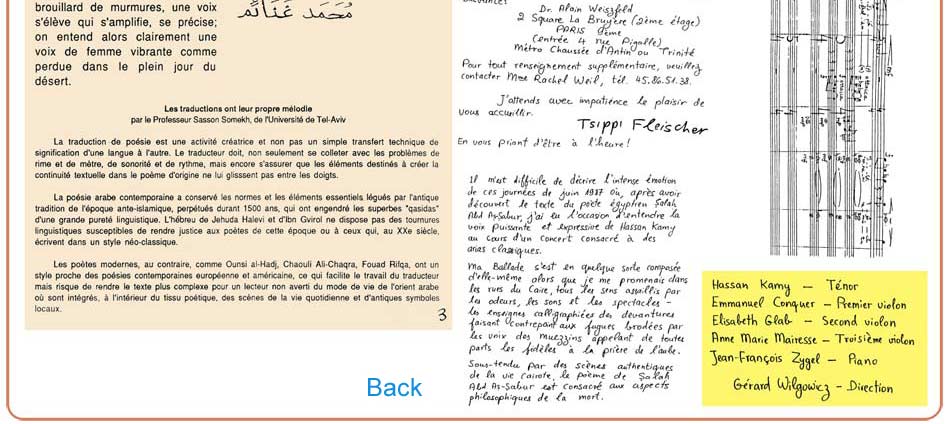 brouillard de murmures, une voix
s'élève qui s'amplifie, se précise;
on entend alors clairement une
voix de femme vibrante comme
perdue dans le plein jour du
désert.
محمد غنائم
Les traductions ont leur propre mélodie
par le Professeur Sasson Somekh, de l'Université de Tel-Aviv
La traduction de poésie est une activité créatrice et non pas un simple transfert technique de
signification d'une langue à l'autre. Le traducteur doit, non seulement se colleter avec les problèmes de
rime et de mètre, de sonorité et de rythme, mais encore s'assurer que les éléments destinés à créer la
continuité textuelle dans le poème d'origine ne lui glissent pas entre les doigts.
La poésie arabe contemporaine a conservé les normes et les éléments essentiels légués par l'antique
tradition de l'époque ante-islamique, perpétués durant 1500 ans, qui ont engendré les superbes "qasidas"
d'une grande pureté linguistique. L'hébreu de Jehuda Halevi et d'Ibn Gvirol ne dispose pas des tournures
linguistiques susceptibles de rendre justice aux poètes de cette époque ou à ceux qui, au XXe siècle,
écrivent dans un style néo-classique.
Les poètes modernes, au contraire, comme Ounsi al-Hadj, Chaouli Ali-Chaqra, Fouad Rifqa, ont un
style proche des poésies contemporaines européenne et américaine, ce qui facilite le travail du traducteur
mais risque de rendre le texte plus complexe pour un lecteur non averti du mode de vie de l'orient arabe
où sont intégrés, à l'intérieur du tissu poétique, des scènes de la vie quotidienne et d'antiques symboles
locaux.
3
Back
Dr. Alain Weiszfeld
2 Square La Bruyère (2ème étage)
PARIS 9ème
(entrée 4 rue Pigalle)
Métro Chaussée d'Antin ou Trinité
Pour tout renseignement supplémentaire, veuillez
contacter Mme Rachel Weil, tél. 45.86.51.38.
J'attends avec impatience le plaisir de
vous accueillir.
Tsippi Fleischer
En vous priant d'être à l'heure!
Il m'est difficile de décrire l'intense émotion
de ces journées de juin 1987 où, après avoir
découvert le texte du poète égyptien Salah
Abd As-Sabur, j'ai eu l'occasion d'entendre la
voix puissante et expressive de Hassan Kamy
au cours d'un concert consacré à des
arias classiques.
Ma Ballade s'est en quelque sorte composée
d'elle-même alors que je me promenais dans
les rues du Caire, tous les sens assaillis par
les odeurs, les sons et les spectacles -
les enseignes calligraphiées des devantures
faisant contrepoint aux fugues brodées par
les voix des muezzins appelant de toutes
parts les fidèles à la prière de l'aube.
Sous-tendu par des scènes authentiques
de la vie cairote, le poème de Salah
Abd As-Sabur est consacré aux aspects
philosophiques de la mort.
Hassan Kamy — Ténor
Emmanuel Conquer — Premier violon
Elisabeth Glab — Second violon
Anne Marie Mairesse — Troisième violon
Jean-François Zygel — Piano
Gérard Wilgowicz - Direction